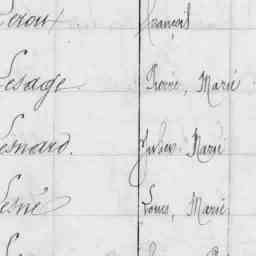 Leroux François
Lesage Pierre, Marie
Lesnard. Julien Marie
Lesné Louis, Marie